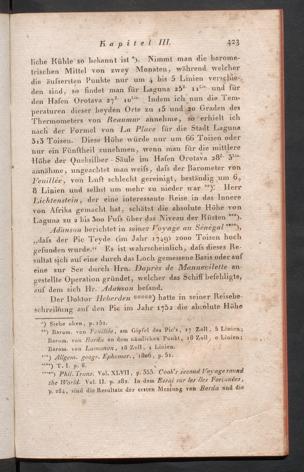 Kapitel III. 423
liche Kühle so bekannt ist *). Nimmt man die barome-
trischen Mittel von zwey Monaten, während welcher
die äußersten Punkte nur um 4 bis 5 Linien verschie-
den sind, so findet man für Laguna 25ᶻ 11ˡⁱⁿ und für
den Hafen Orotava 27ᶻ 10ˡⁱⁿ. Indem ich nun die Tem-
peraturen dieser beyden Orte zu 15 und 20 Graden des
Thermometers von Reaumur annehme, so erhielt ich
nach der Formel von La Place für die Stadt Laguna
313 Toisen. Diese Höhe würde nur um 66 Toisen oder
nur ein Fünftheil zunehmen, wenn man für die mittlere
Höhe der Quecksilber-Säule im Hafen Orotava 28ᶻ 3ˡⁱⁿ
annähme, ungeachtet man weiß, daß der Barometer von
Feuillée, von Luft schlecht gereinigt, beständig um 6,
8 Linien und selbst um mehr zu nieder war **). Herr
Lichtenstein, der eine interessante Reise in das Innere
von Afrika gemacht hat, schätzt die absolute Höhe von
Laguna zu 2 bis 300 Fuß über das Niveau der Küsten ***).
Adanson berichtet in seiner Voyage au Sénégal ****),
„daß der Pic Teyde (im Jahr 1749) 2000 Toisen hoch
gefunden wurde.“ Es ist wahrscheinlich, daß dieses Re-
sultat sich auf eine durch das Loch gemessene Basis oder auf
eine zur See durch Hrn. Daprès de Mannevilette an-
gestellte Operation gründet, welcher das Schiff befehligte,
auf dem sich Hr. Adanson befand.
Der Doktor Heberden *****) hatte in seiner Reisebe-
schreibung auf den Pic im Jahr 1752 die absolute Höhe
*) Siehe oben, p. 151.
**) Barom. von Feuillée, am Gipfel des Pic's, 17 Zoll, 5 Linien;
Barom. von Borda an dem nämlichen Punkt, 18 Zoll, 0 Linien;
Barom. von Lamanon, 18 Zoll, 4 Linien.
***) Allgem. geogr. Ephemer., 1806, p. 51.
****) T. I. p. 8.
*****) Phil. Trans. Vol. XLVII, p. 353. Cook's second Voyage round
the World. Vol. II. p. 282. In dem Essai sur les îles Fortunées,
p. 284, sind die Resultate der ersten Messung von Borda und die